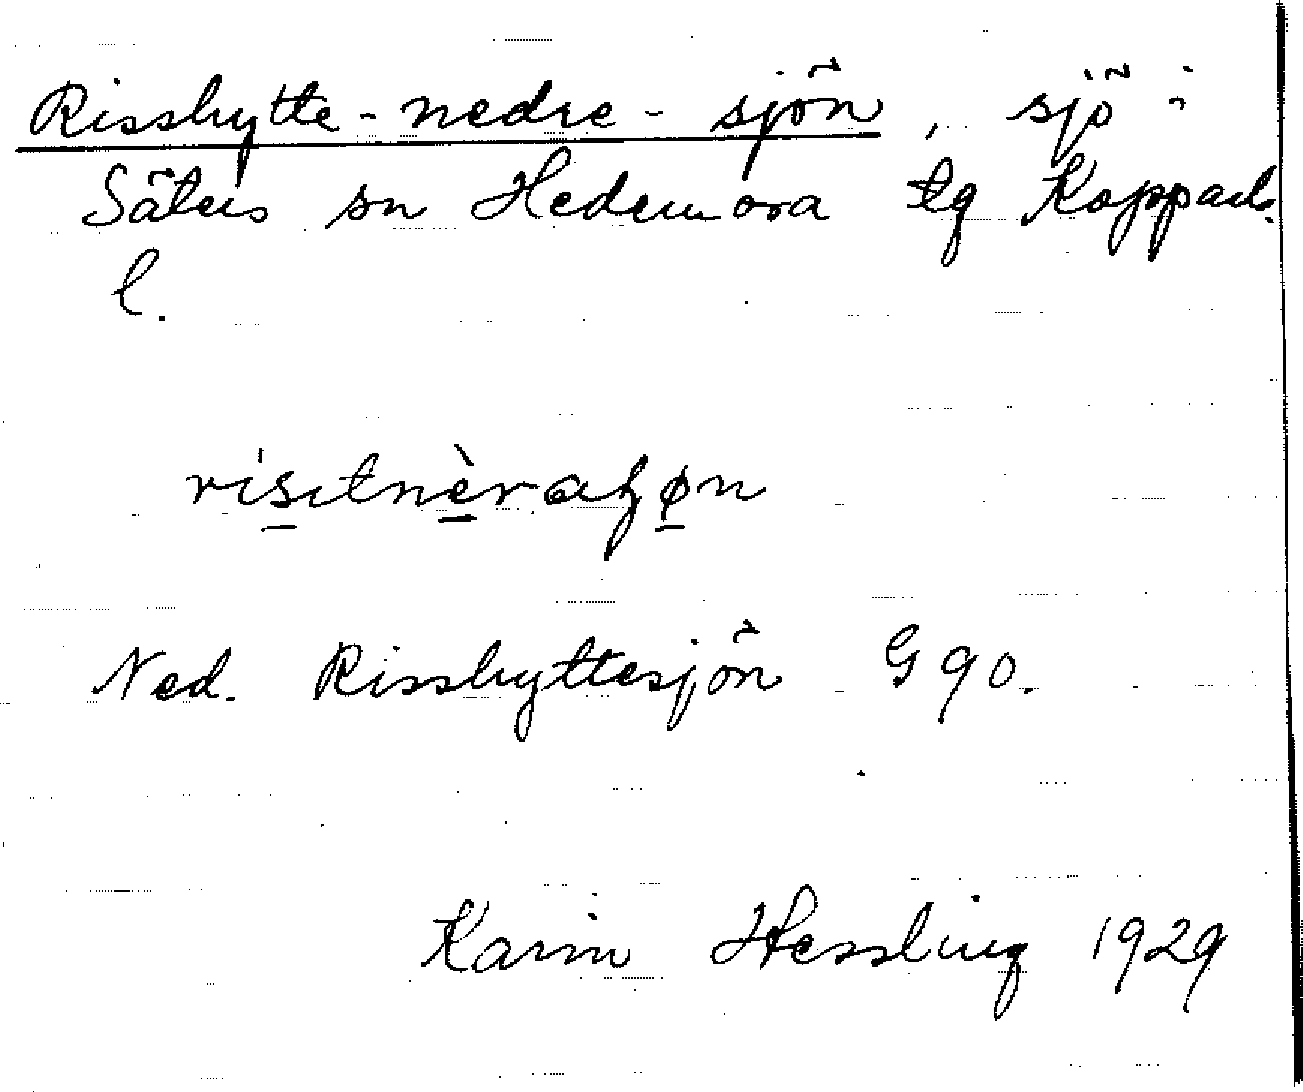 Risshytte-nedre-sjön, sjö i
Säters sn Hedemora tg Kopparb.
l.
Ned. Risshyttesjön G 90.
Karin Hessling 1929